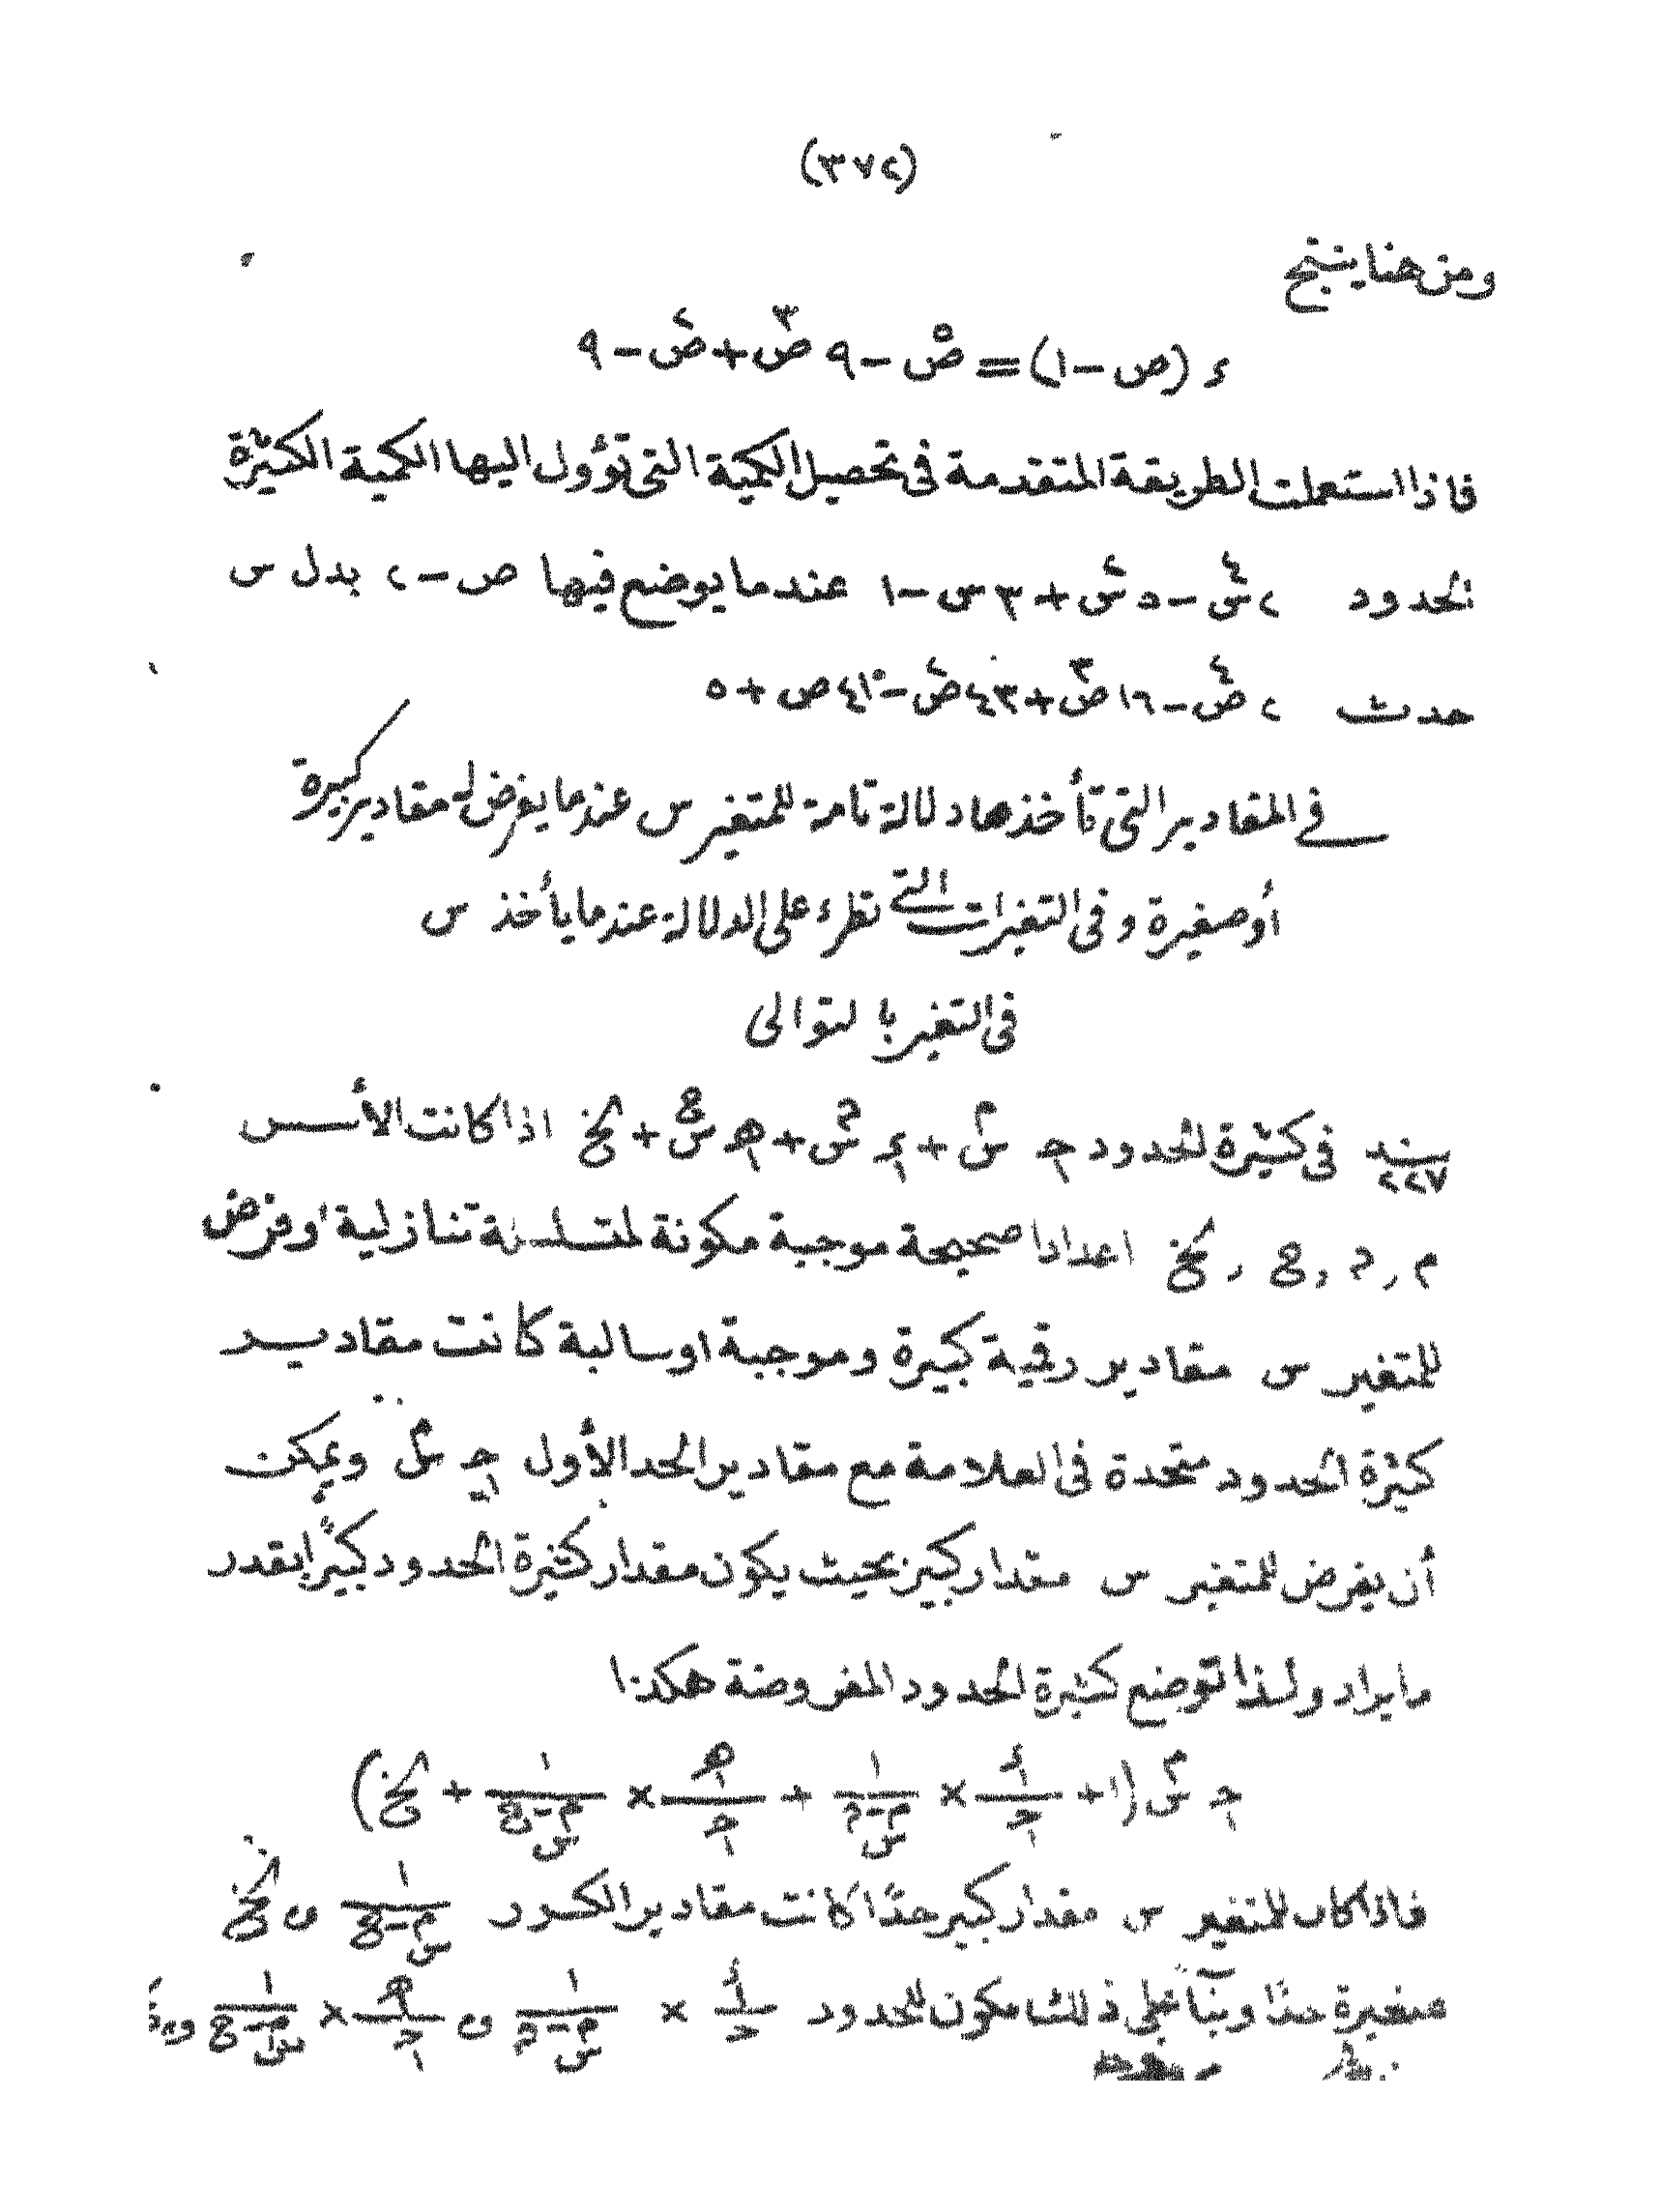 (٣٧٢)
ومن هنا ينتج
ء (ص-١) = ص^٥ - ٩ ص^٣ + ص^٢ - ٩
فاذا استعملت الطريقة المتقدمة فى تحصيل الكمية التى تؤول اليها الكمية الكثيرة
الحدود ٢ س^٤ - ٥ س^٢ + ٣ س - ١ عندما يوضع فيها ص - ٢ بدل س
حدث ٢ ص^٤ - ١٦ ص^٣ + ٤٣ ص^٢ - ٤١ ص + ٥
فى المقادير التى تأخذها دلالة تامة للمتغير س عندما يفرض له مقادير كبيرة
أو صغيرة وفى التغيرات التى تطرء على الدلالة عندما يأخذ س
فى التغير بالتوالى
بند ٢٢٧ فى كثيرة الحدود جـ١ س^م + ء١ س^د + هـ١ س^ع + الخ اذا كانت الأسس
م , د , ع , الخ اعدادا صحيحة موجبة مكونة لمتسلسلة تنازلية اوفرض
للمتغير س مقادير رقمية كبيرة وموجبة اوسالبة كانت مقادير
كثيرة الحدود متحدة فى العلامة مع مقادير الحد الأول جـ١ س^م ويمكن
أن يفرض للمتغير س مقدار كبير بحيث يكون مقدار كثيرة الحدود كبيرًا بقدر
ما يراد ولذا توضع كثيرة الحدود المفروضة هكذا
جـ١ س^م (١ + ء١/جـ١ × ١/س^(م-د) + هـ١/جـ١ × ١/س^(م-ع) + الخ)
فاذا كان للمتغير س مقدار كبير جدًا كانت مقادير الكسور ١/س^(م-ع) و الخ
صغيرة جدًا وبناً على ذلك تكون الحدود ء١/جـ × ١/س^(م-د) و هـ١/جـ١ × ١/س^(م-ع) و